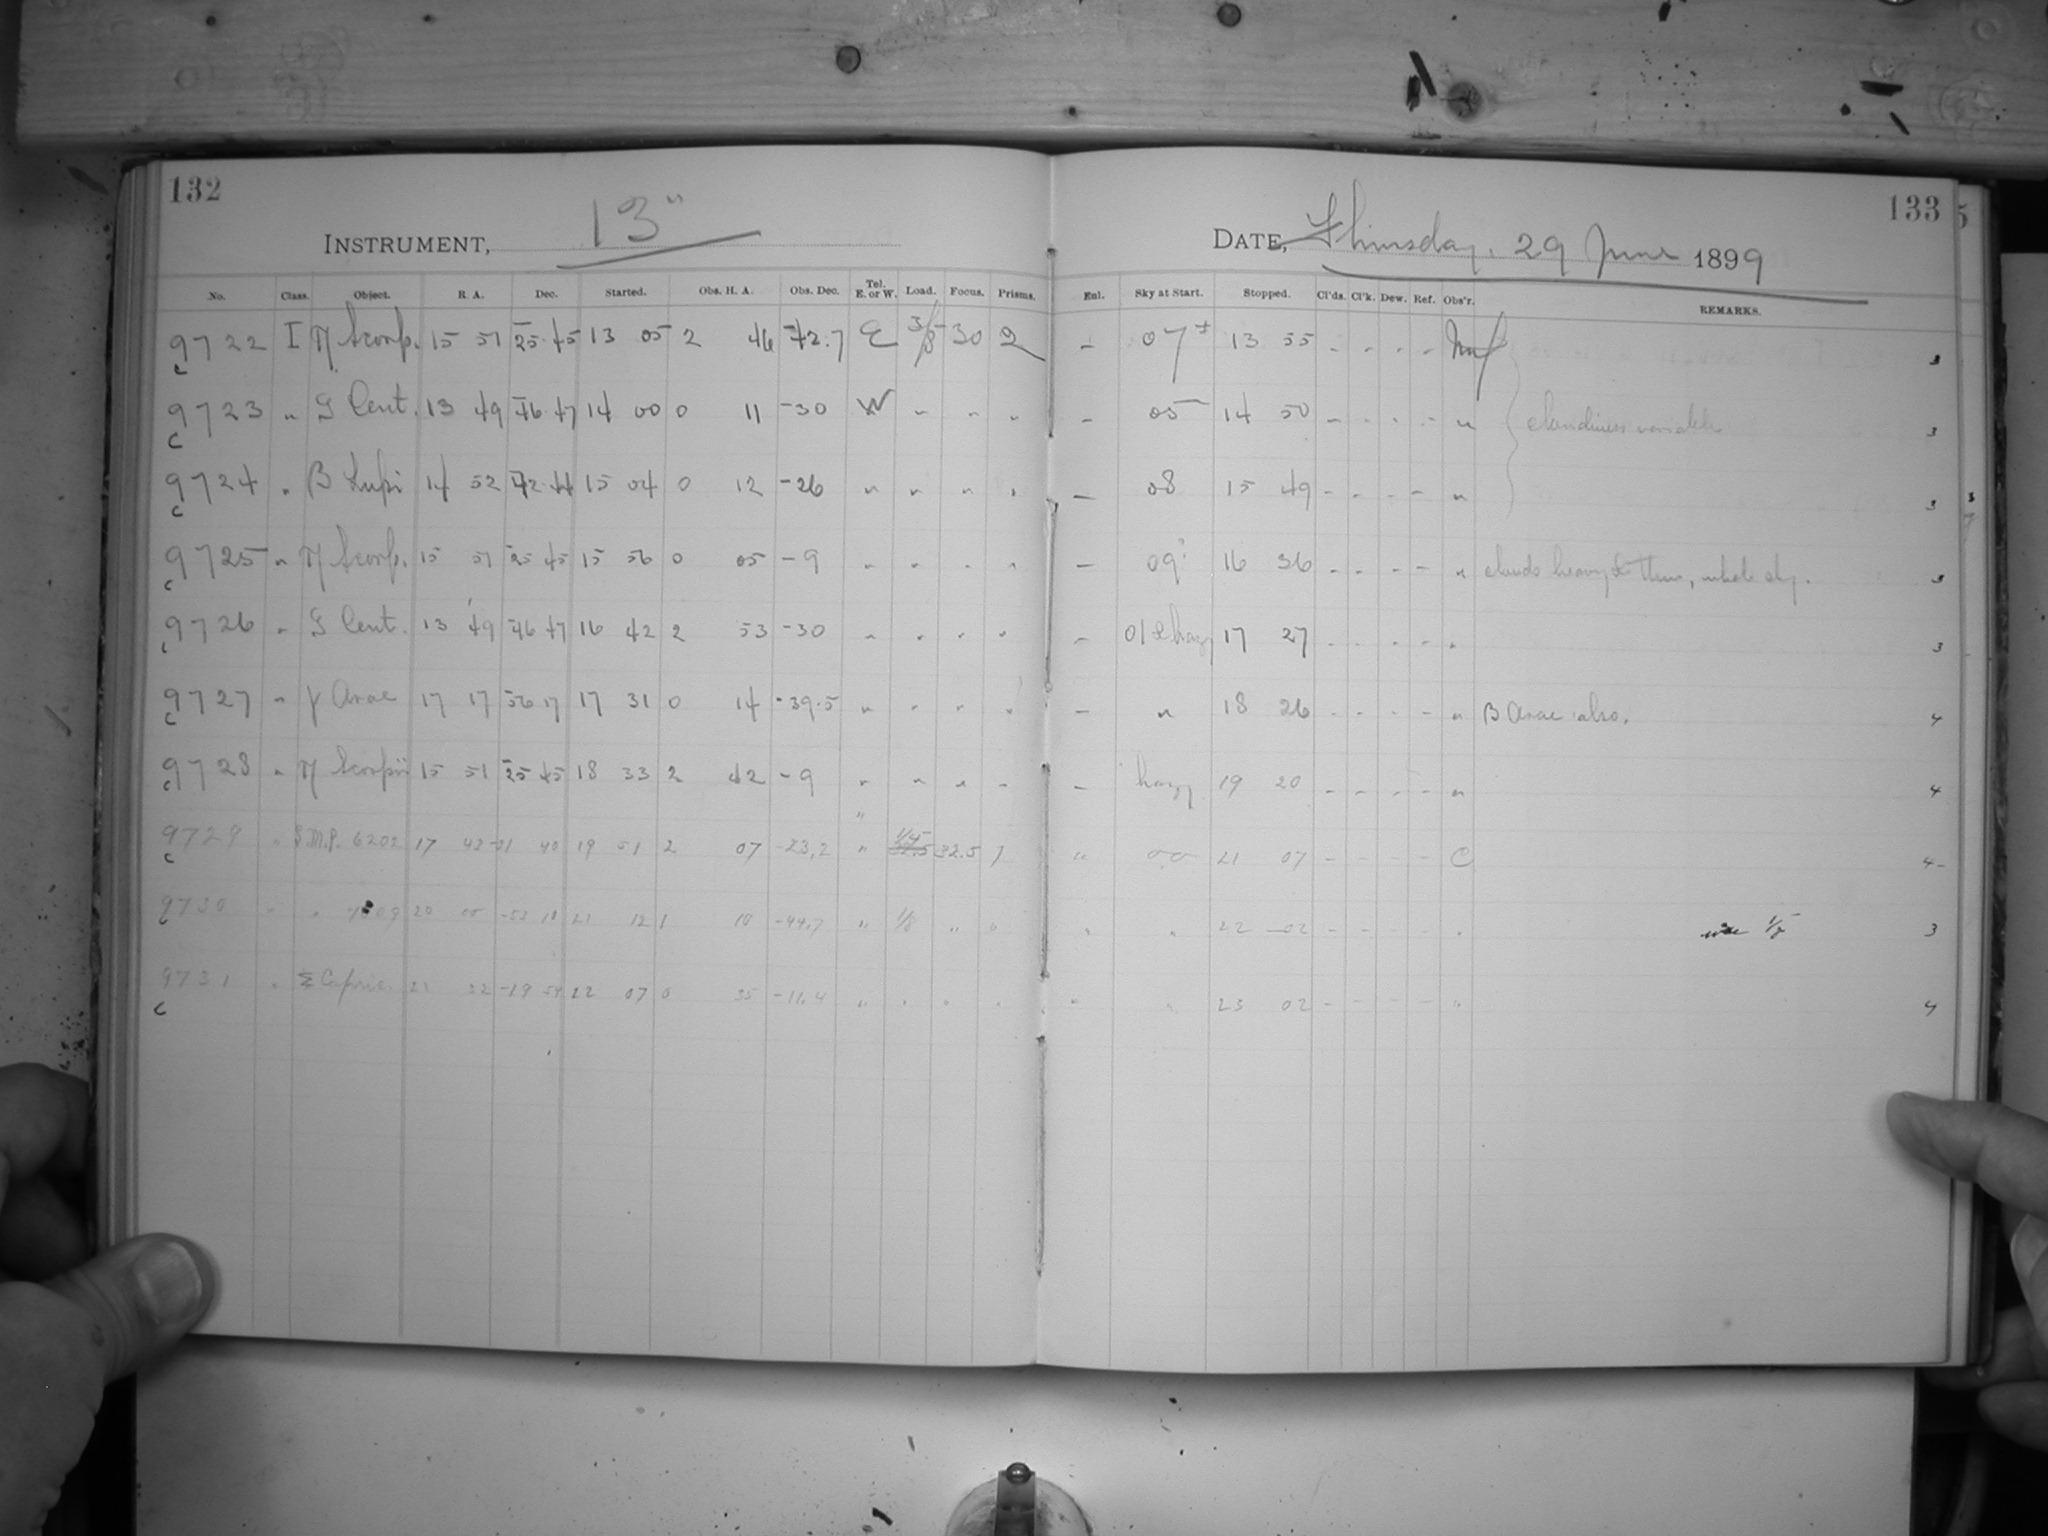 132
INSTRUMENT, 13"
No. Class. Object. R. A. Dec. Started. Obs. H. A. Obs. Dec. Tel. E. or W. Load. Focus. Prisms.
9722 I π Scorp. 15 51 -25 45 13 05 2 46 -42.7 E 30 2
c
9723 " Cent. 13 49 -46 47 14 00 0 11 -30 W " " "
c
9724 " β Lupi 14 52 -42 44 15 04 0 12 -26 " " " "
c
9725 " π Scorp. 15 51 -25 45 15 56 0 05 -9 " " " "
c
9726 " Cent. 13 49 -46 47 16 42 2 53 -30 " " " "
c
9727 " γ Arae 17 17 -56 17 17 31 0 14 -39.5 " " " "
c
9728 " π Scorpii 15 51 -25 45 18 33 2 42 -9 " " " "
c
9729 " S.M.P. 6202 17 19 51 2 07 -23.2 " 32.5 1
c
9730 " " 20 21 12 1 10 -44.7 " 1/8 " "
c
9731 " Capric. 21 22 -19 54 22 07 0 35 -11.4 " " " "
c
133
DATE, Thursday, 29 June 1899
Enl. Sky at Start. Stopped. Cl'ds. Cl'k. Dew. Ref. Obs'r. REMARKS.
- 07± 13 55 - - - - 3
- 05 14 50 - - - - " cloudiness variable 3
- 08 15 49 - - - - " 3
- 09 16 36 - - - - " clouds heavy thin, whole sky. 3
- 01 & hazy 17 27 - - - - " 3
- " 18 26 - - - - " β Arae also. 4
- hazy 19 20 - - - - " 4
" 21 07 - - - - C 4
" " 22 02 - - - - " 3
" " 23 02 - - - - " 4